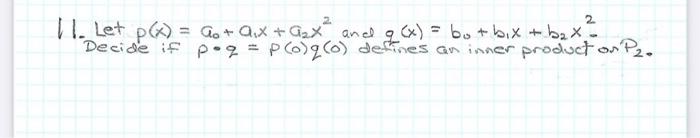 11. Let p(x) = a₀ + a₁x + a₂x² and q(x) = b₀ + b₁x + b₂x².
Decide if p•q = p(0)q(0) defines an inner product on P₂.